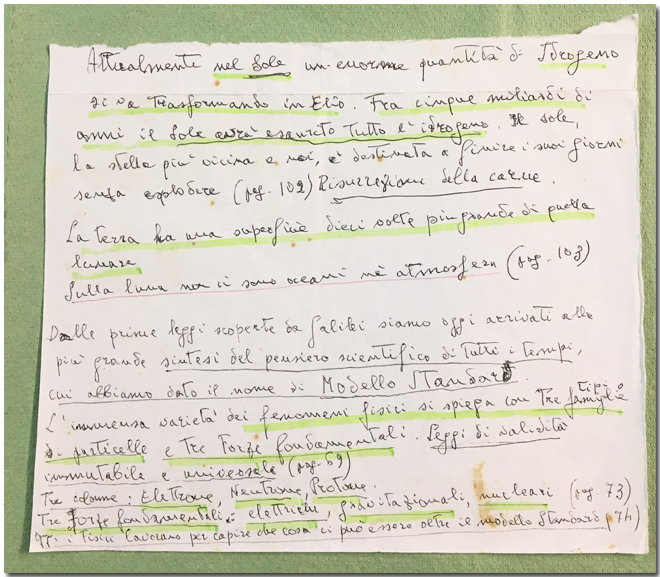 Attualmente nel Sole un enorme quantità di Idrogeno
si va trasformando in Elio. Fra cinque miliardi di
anni il Sole avrà esaurito tutto l'idrogeno. Il sole,
la stella più vicina a noi, è destinata a finire i suoi giorni
senza esplodere (pag. 102) Risurrezione della carne.
La terra ha una superficie dieci volte più grande di quella
lunare
Sulla luna non ci sono oceani nè atmosfera (pag. 103)
Dalle prime leggi scoperte da Galilei siamo oggi arrivati alla
più grande sintesi del pensiero scientifico di tutti i tempi,
cui abbiamo dato il nome di Modello Standard
L'immensa varietà dei fenomeni fisici si spiega con tre famiglie
tipi
di particelle e tre forze fondamentali. Leggi di validità
immutabile e universale (pag. 69)
Tre colonne: Elettrone, Neutrone, Protone.
Tre forze fondamentali: elettriche, gravitazionali, nucleari (pag 73)
i Fisici lavorano per capire che cosa ci può essere oltre il modello Standard (74)